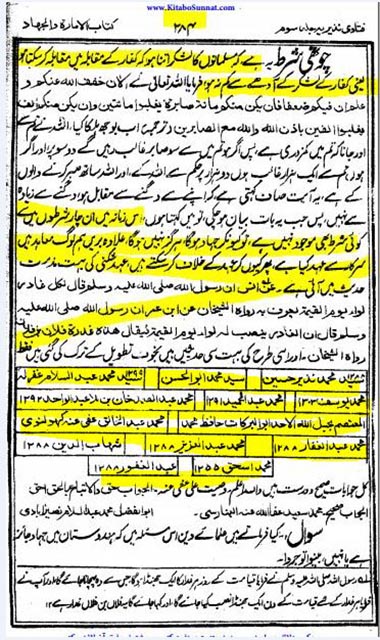 www.KitaboSunnat.com
فتاوی نذیریہ جلد سوم ۲۸۴ کتاب الامارۃ والجہاد
چوتھی شرط یہ ہے کہ مسلمانوں کا لشکر اتنا ہو کہ کفار کے مقابلہ میں مقابلہ کر سکتا ہو
یعنی کفار کے لشکر کے آدھے سے کم نہ ہو، فرمایا اللہ تعالیٰ نے الان خفف اللہ عنکم و
علم ان فیکم ضعفا فان یکن منکم مائۃ صابرۃ یغلبوا مائتین وان یکن منکم الف
یغلبوا الفین باذن اللہ واللہ مع الصابرین ترجمہ اب بوجھ ہلکا کیا، اللہ نے تم سے
اور جانا کہ تم میں کمزوری ہے، پس اگر ہو تم میں سے سو صابر غالب رہیں گے دو سو پر اور اگر
ہوں تم سے ایک ہزار غالب ہوں دو ہزار پر حکم سے اللہ کے، اور اللہ ساتھ صبر کرنے والوں
کے ہے، یہ آیت صاف کہتی ہے، کہ اپنے سے دگنے سے مقابل ہو، دگنے سے زیادہ
سے نہیں، پس جب یہ بات بیان ہو چکی، تو میں کہتا ہوں، اس زمانہ میں ان چار شرطوں میں سے
کوئی شرط بھی موجود نہیں ہے، تو کیونکر جہاد ہوگا، ہرگز نہیں ہوگا، علاوہ بریں ہم لوگ معاہد ہیں
سرکار سے عہد کیا ہے، پھر کیوں کر عہد کے خلاف کر سکتے ہیں، عہد شکنی کی بہت مذمت
حدیث میں آئی ہے، عن انس ان رسول اللہ صلی اللہ علیہ وسلم قال لکل غادر
لواء یوم القیمۃ یعرف بہ رواہ الشیخان عن ابن عمر ان رسول اللہ صلی اللہ علیہ
وسلم قال ان الغادر ینصب لہ لواء یوم القیمۃ فیقال ھذہ غدرۃ فلان بن فلان
رواہ الشیخان، اور اسی طرح کی بہت سی حدیثیں ہیں، بخوف تطویل کے ترک کی گئیں فقط
سید محمد نذیر حسین سید محمد ابو الحسن محمد عبد السلام غفرلہ
محمد یوسف محمد عبد الحمید ۱۲۹۳ محمد عبد الواحد ۱۲۹۲
المعتصم بحبل اللہ الاحد ابو البرکات حافظ محمد محمد عبد الخالق عفی عنہ
محمد عبد الغفار ۱۲۸۸ محمد عبد العزیز ۱۲۸۸ شہاب الدین ۱۲۸۸
محمد اسحق ۱۲۵۵ عبد الغفور ۱۲۸۸
کل جوابات صحیح و درست ہیں، واللہ اعلم، وصیت علی عفی عنہ، الجواب حق والاتباع بالحق احق
الجواب صحیح، محمد سعید عفا اللہ عنہ البنارسی۔ ابو الفضل محمد عبد السلام نصیر آبادی
سوال، کیا فرماتے ہیں علمائے دین اس مسئلہ میں کہ ہندوستان میں جہاد جائز
ہے یا نہیں، بینوا توجروا۔